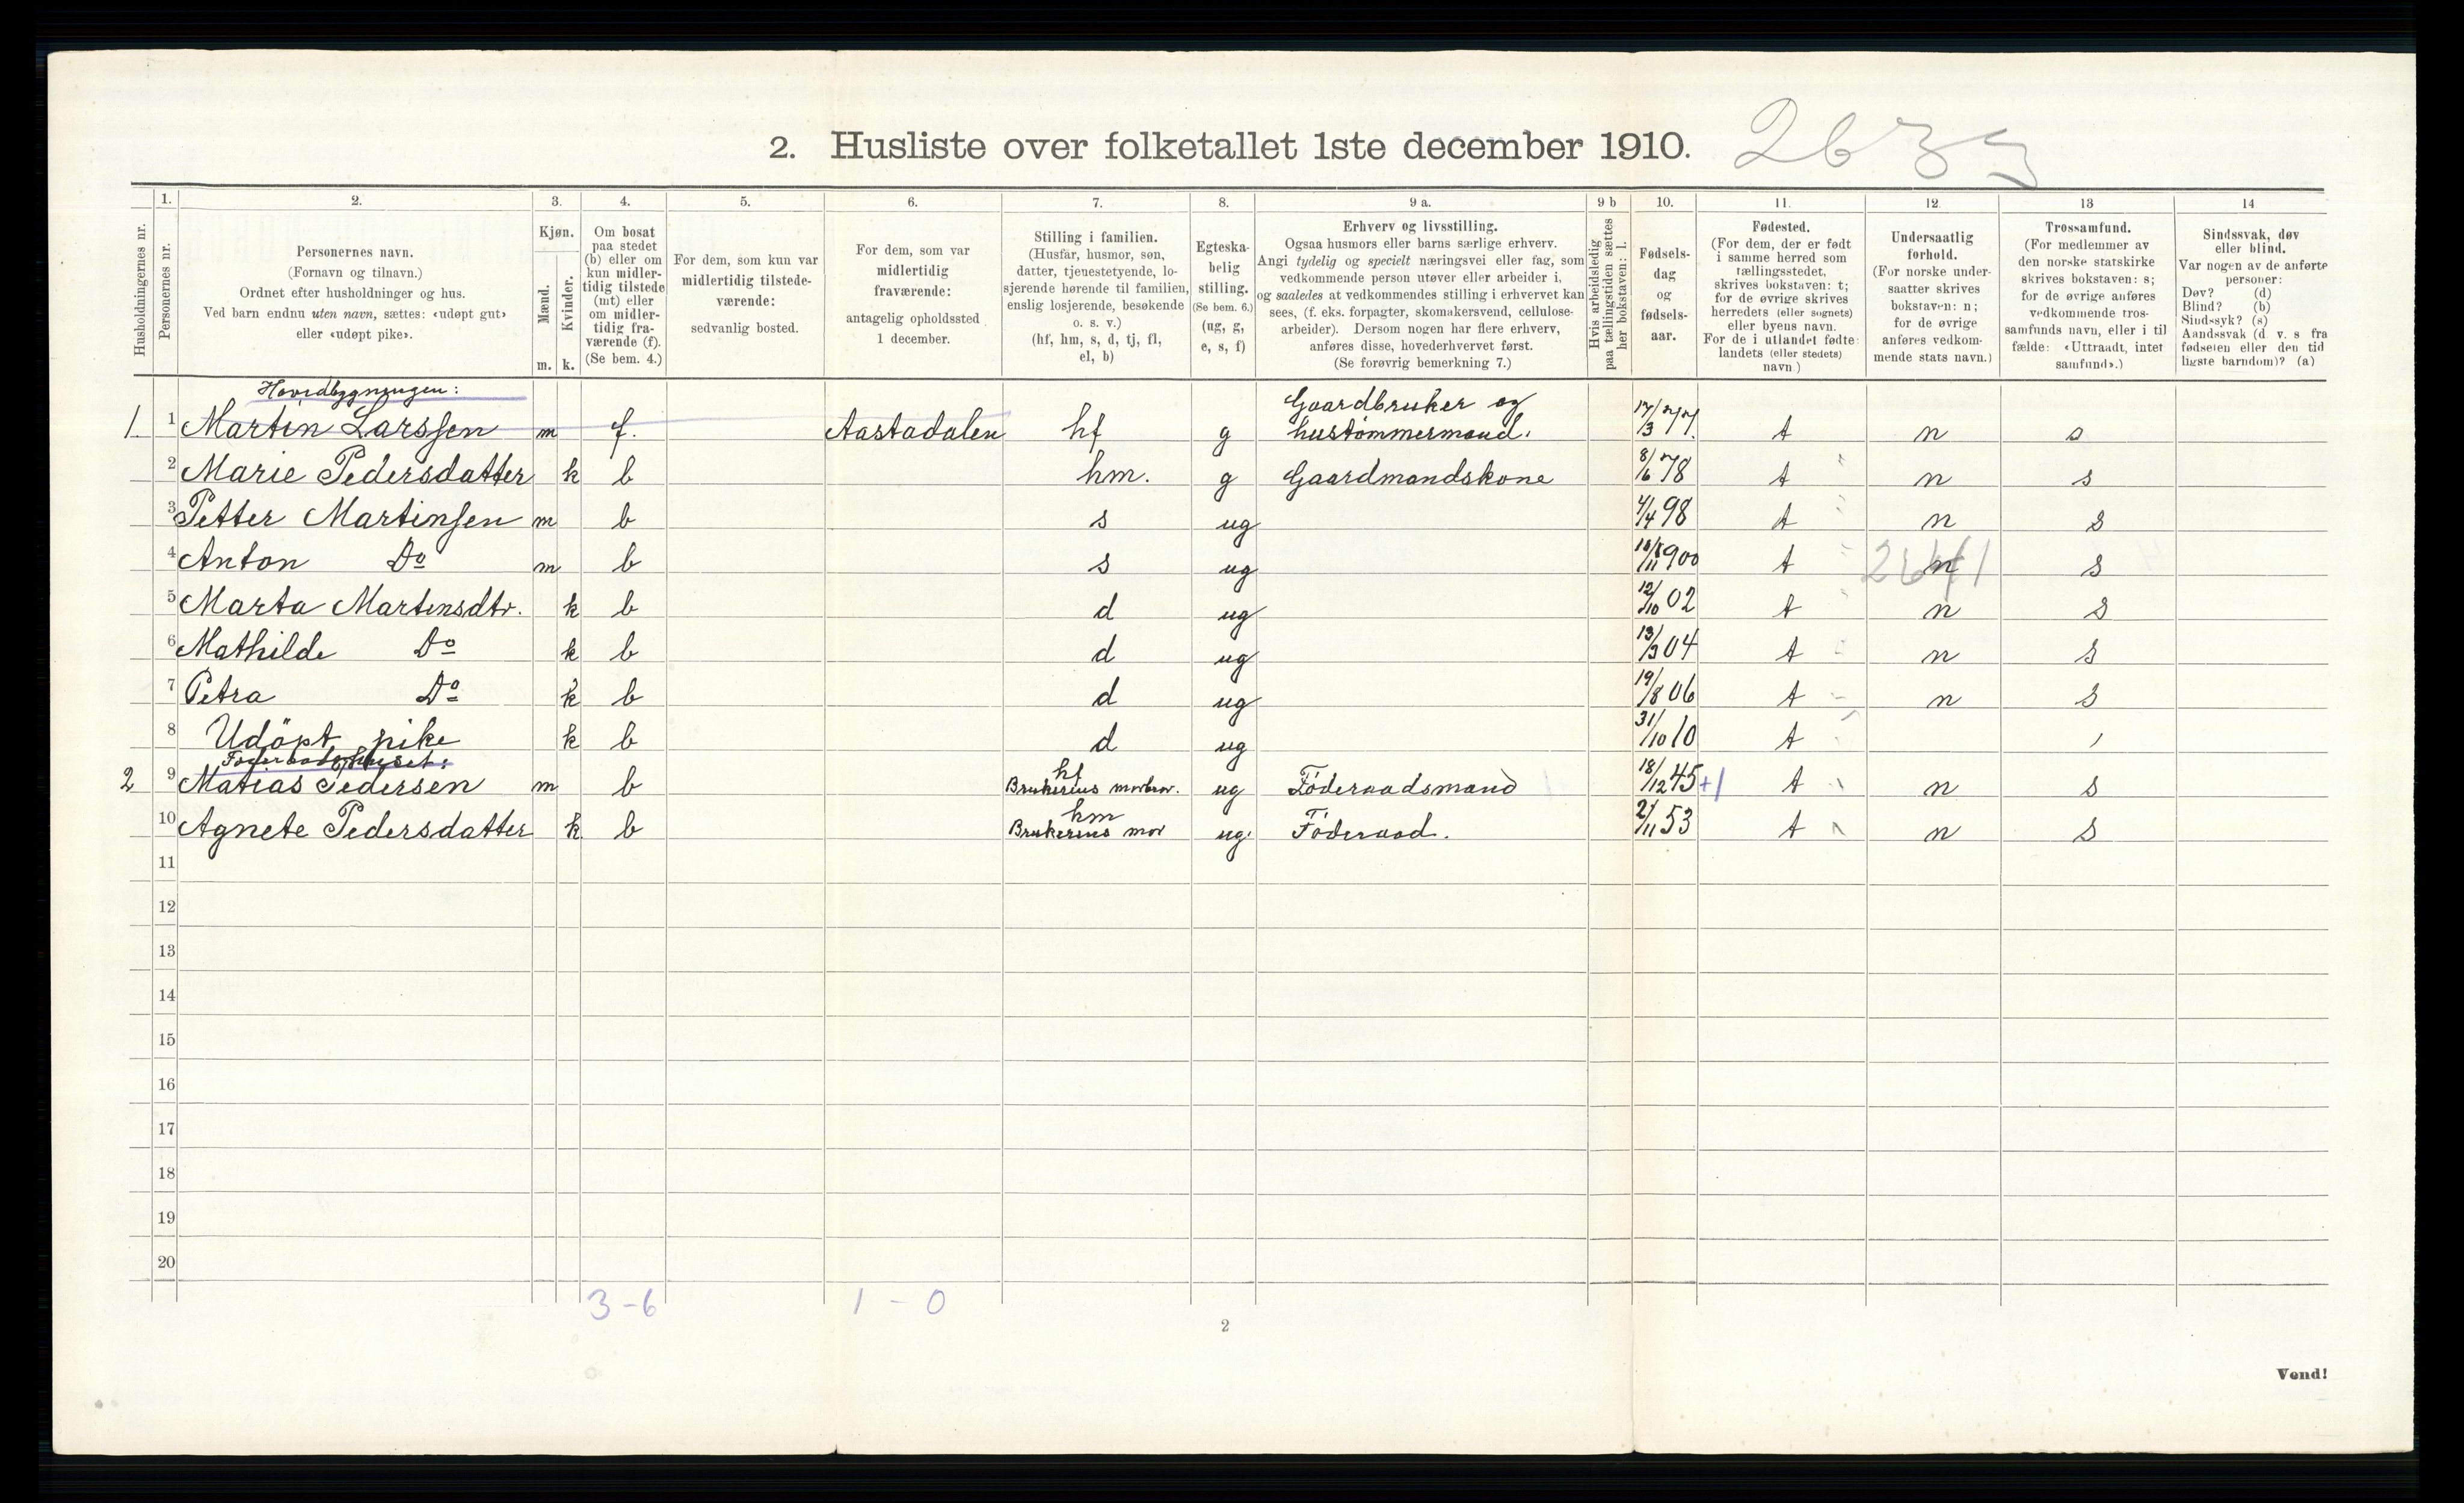 2. Husliste over folketallet 1ste december 1910.
1. 2. 3. 4. 5. 6. 7. 8. 9 a. 9 b 10. 11. 12. 13 14
Husholdningernes nr.
Personernes nr.
Personernes navn.
(Fornavn og tilnavn.)
Ordnet efter husholdninger og hus.
Ved barn endnu uten navn, sættes: «udøpt gut»
eller «udøpt pike».
Kjøn.
Mænd.
m.
Kvinder.
k.
Om bosat
paa stedet
(b) eller om
kun midler-
tidig tilstede
(mt) eller
om midler-
tidig fra-
værende (f).
(Se bem. 4.)
For dem, som kun var
midlertidig tilstede-
værende:
sedvanlig bosted.
For dem, som var
midlertidig
fraværende:
antagelig opholdssted
1 december.
Stilling i familien.
(Husfar, husmor, søn,
datter, tjenestetyende, lo-
sjerende hørende til familien,
enslig losjerende, besøkende
o. s. v.)
(hf, hm, s, d, tj, fl,
el, b)
Egteska-
belig
stilling.
(Se bem. 6.)
(ug, g,
e, s, f)
Erhverv og livsstilling.
Ogsaa husmors eller barns særlige erhverv.
Angi tydelig og specielt næringsvei eller fag, som
vedkommende person utøver eller arbeider i,
og saaledes at vedkommendes stilling i erhvervet kan
sees, (f. eks. forpagter, skomakersvend, cellulose-
arbeider). Dersom nogen har flere erhverv,
anføres disse, hovederhvervet først.
(Se forøvrig bemerkning 7.)
Hvis arbeidsledig
paa tællingstiden sættes
her bokstaven: l.
Fødsels-
dag
og
fødsels-
aar.
Fødested.
(For dem, der er født
i samme herred som
tællingsstedet,
skrives bokstaven: t;
for de øvrige skrives
herredets (eller sognets)
eller byens navn.
For de i utlandet fødte:
landets (eller stedets)
navn.)
Undersaatlig
forhold.
(For norske under-
saatter skrives
bokstaven: n;
for de øvrige
anføres vedkom-
mende stats navn.)
Trossamfund.
(For medlemmer av
den norske statskirke
skrives bokstaven: s;
for de øvrige anføres
vedkommende tros-
samfunds navn, eller i til
fælde: «Uttraadt, intet
samfund».)
Sindssvak, døv
eller blind.
Var nogen av de anførte
personer:
Døv? (d)
Blind? (b)
Sindssyk? (s)
Aandssvak (d v. s fra
fødselen eller den tid
ligste barndom)? (a)
Hovedbygningen:
1. 1 Martin Larssen m f. Aastadalen hf g Gaardbruker og hustømmermand. 17/3 77. t n s
2 Marie Pedersdatter k b hm. g Gaardmandskone 8/6 78 t n s
3 Petter Martinsen m b s ug 4/4 98 t n s
4 Anton Do m b s ug 11 900 t n s
5 Marta Martinsdtr. k b d ug 12/10 02 t n s
6 Mathilde Do k b d ug 13/3 04 t n s
7 Petra Do k b d ug 19/8 06 t n s
8 Udöpt pike k b d ug 31/10 10 t
2 9 Matias Pedersen m b hf Brukerens morbror. ug Föderaadsmand 18/12 45 +1 t n s
10 Agnete Pedersdatter k b hm Brukerens mor ug. Föderaad. 21/11 53 t n s
11
12
13
14
15
16
17
18
19
20
3 - 6 1 - 0
2
Vend!